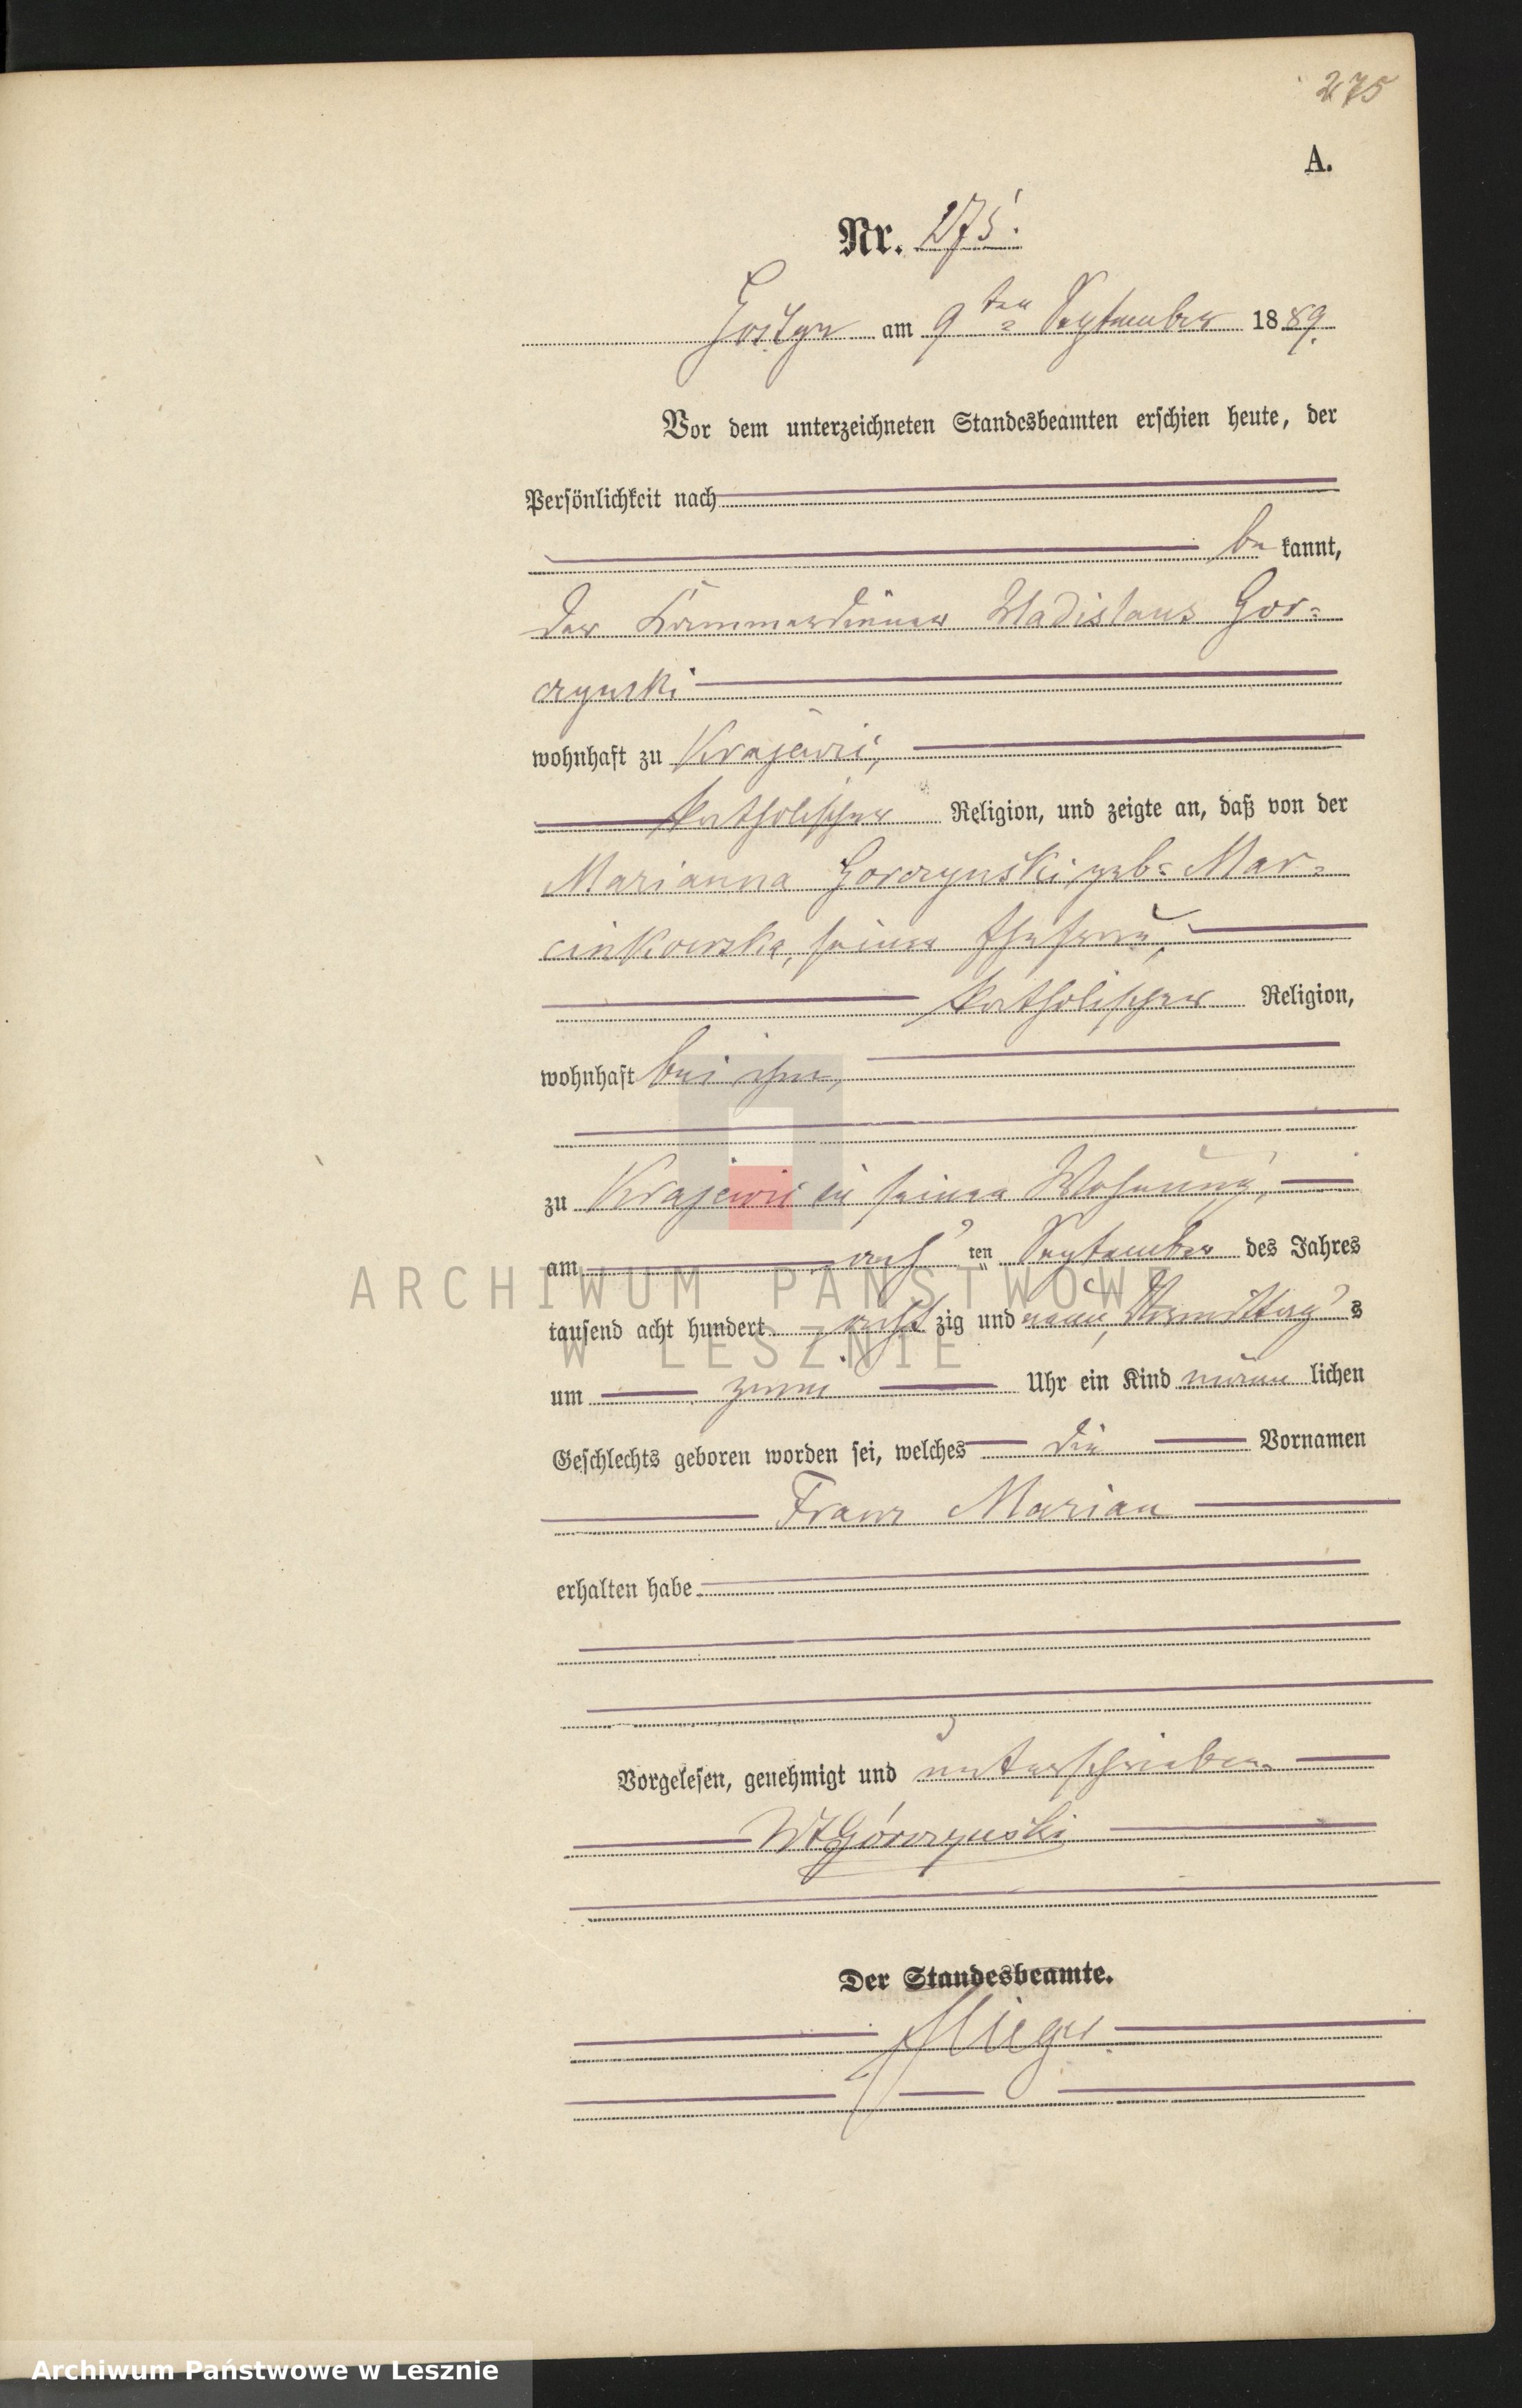 275
A.
Nr. 275.
Gostyn am 9ten September 1889.
Vor dem unterzeichneten Standesbeamten erschien heute, der
Persönlichkeit nach
be kannt,
der Kammerdiener Wladislaus Gor=
czynski
wohnhaft zu Krajewic,
katholischer Religion, und zeigte an, daß von der
Marianna Gorczynski geb= Mar=
cinkowska, seiner Ehefrau,
katholischer Religion,
wohnhaft bei ihm,
zu Krajewic in seiner Wohnung,
am acht ten September des Jahres
tausend acht hundert acht zig und neun, Vormittag s
um zwei Uhr ein Kind männ lichen
Geschlechts geboren worden sei, welches die Vornamen
Franz Marian
erhalten habe
Vorgelesen, genehmigt und unterschrieben
Wł Górczynski
Der Standesbeamte.
ARCHIWUM PAŃSTWOWE
W LESZNIE
Archiwum Państwowe w Lesznie